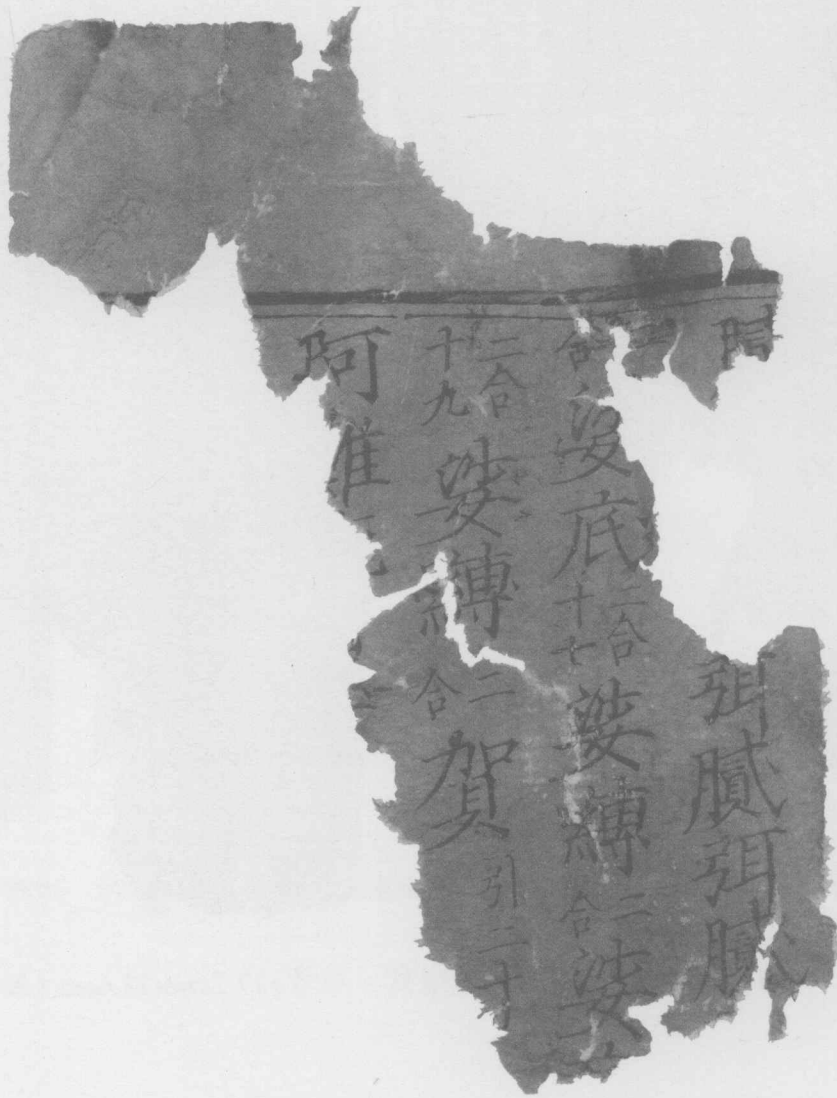 弭膩弭膩
合娑底二合十七娑縛二合娑
二合十九娑縛二合賀引二十
阿